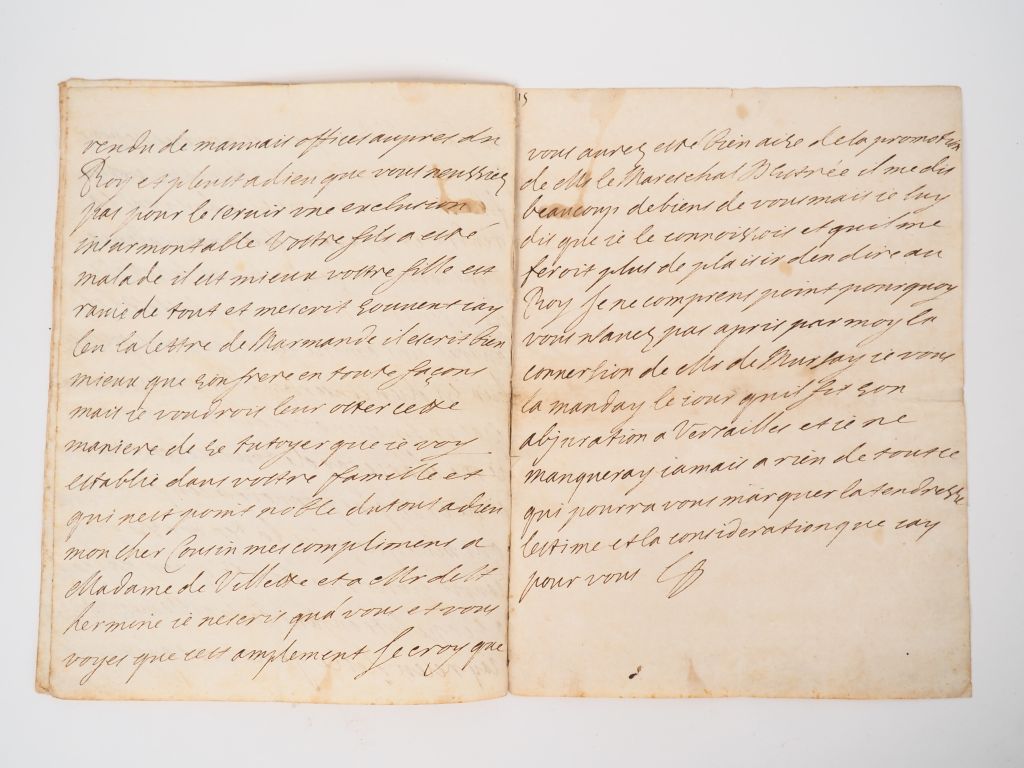 rendu de mauvais offices aupres du
Roy et pleust a dieu que vous neussiez
pas pour le servir une exclusion
insurmontable Vostre fils a esté
malade il est mieux vostre fille est
ravie de tout et mescrit souvent iay
leu la lettre de Marmande il escrit bien
mieux que son frere en toute façons
mais ie voudrois leur oster cette
maniere de se tutoyer que ie voy
establie dans vostre famille et
qui nest point noble du tout adieu
mon cher Cousin mes complimens a
Madame de Villette et a Mr de St
hermine ie nescris qua vous et vous
voyes que cest amplement Je croy que
15
vous aurez esté bien aise de la promotion
de Mr le Mareschal Destrée il me dit
beaucoup de biens de vous mais ie luy
dis que ie le connoissois et quil me
feroit plus de plaisir den dire au
Roy Je ne comprens point pourquoy
vous navez pas apris par moy la
conversion de Mr de Mursay ie vous
la manday le iour quil fit son
abjuration a Versailles et ie ne
manqueray iamais a rien de tout ce
qui pourra vous marquer la tendresse
lestime et la consideration que iay
pour vous